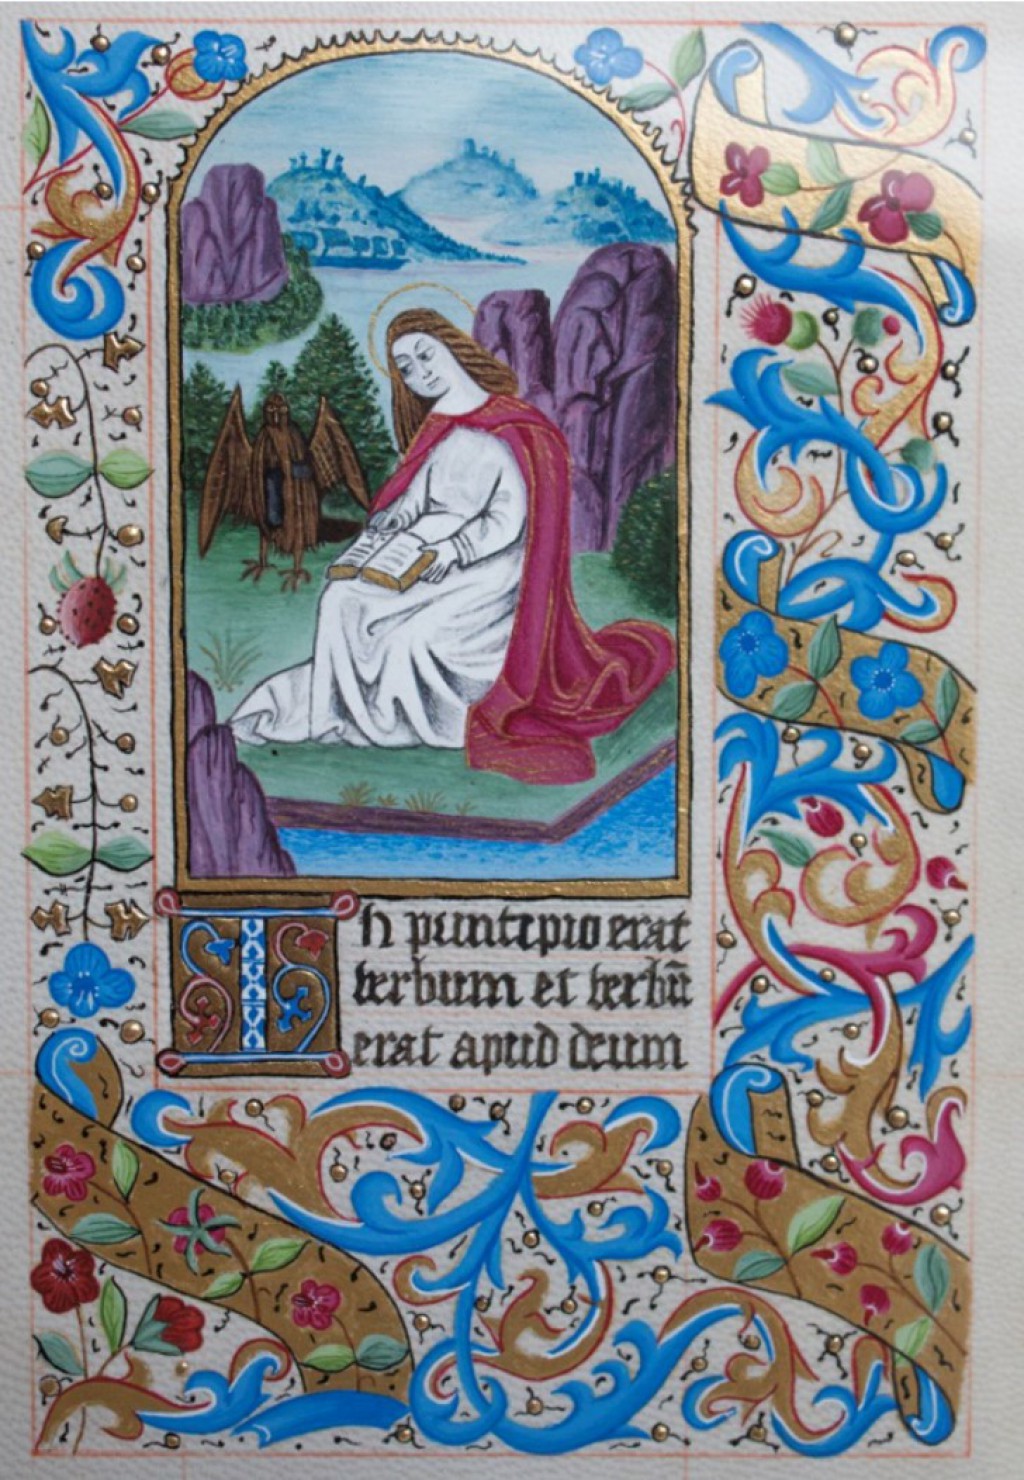 In principio erat
verbum et verbū
erat apud deum